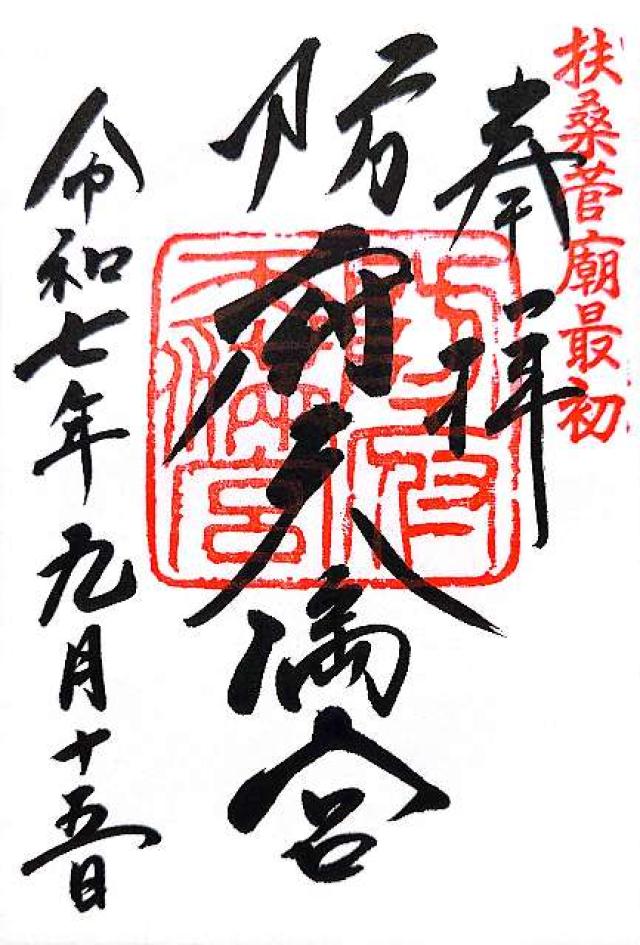 扶桑菅廟最初
奉拝
防府天満宮
防府天満宮
令和七年九月十五日